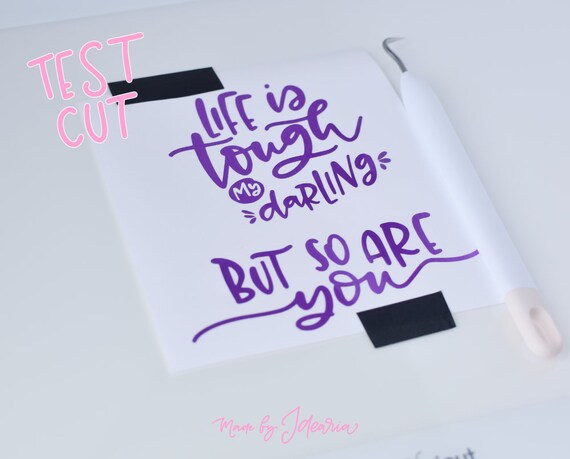 TEST
CUT
LIFE is
tough
MY
darling
BUT SO ARE
you
Made by Jdearia